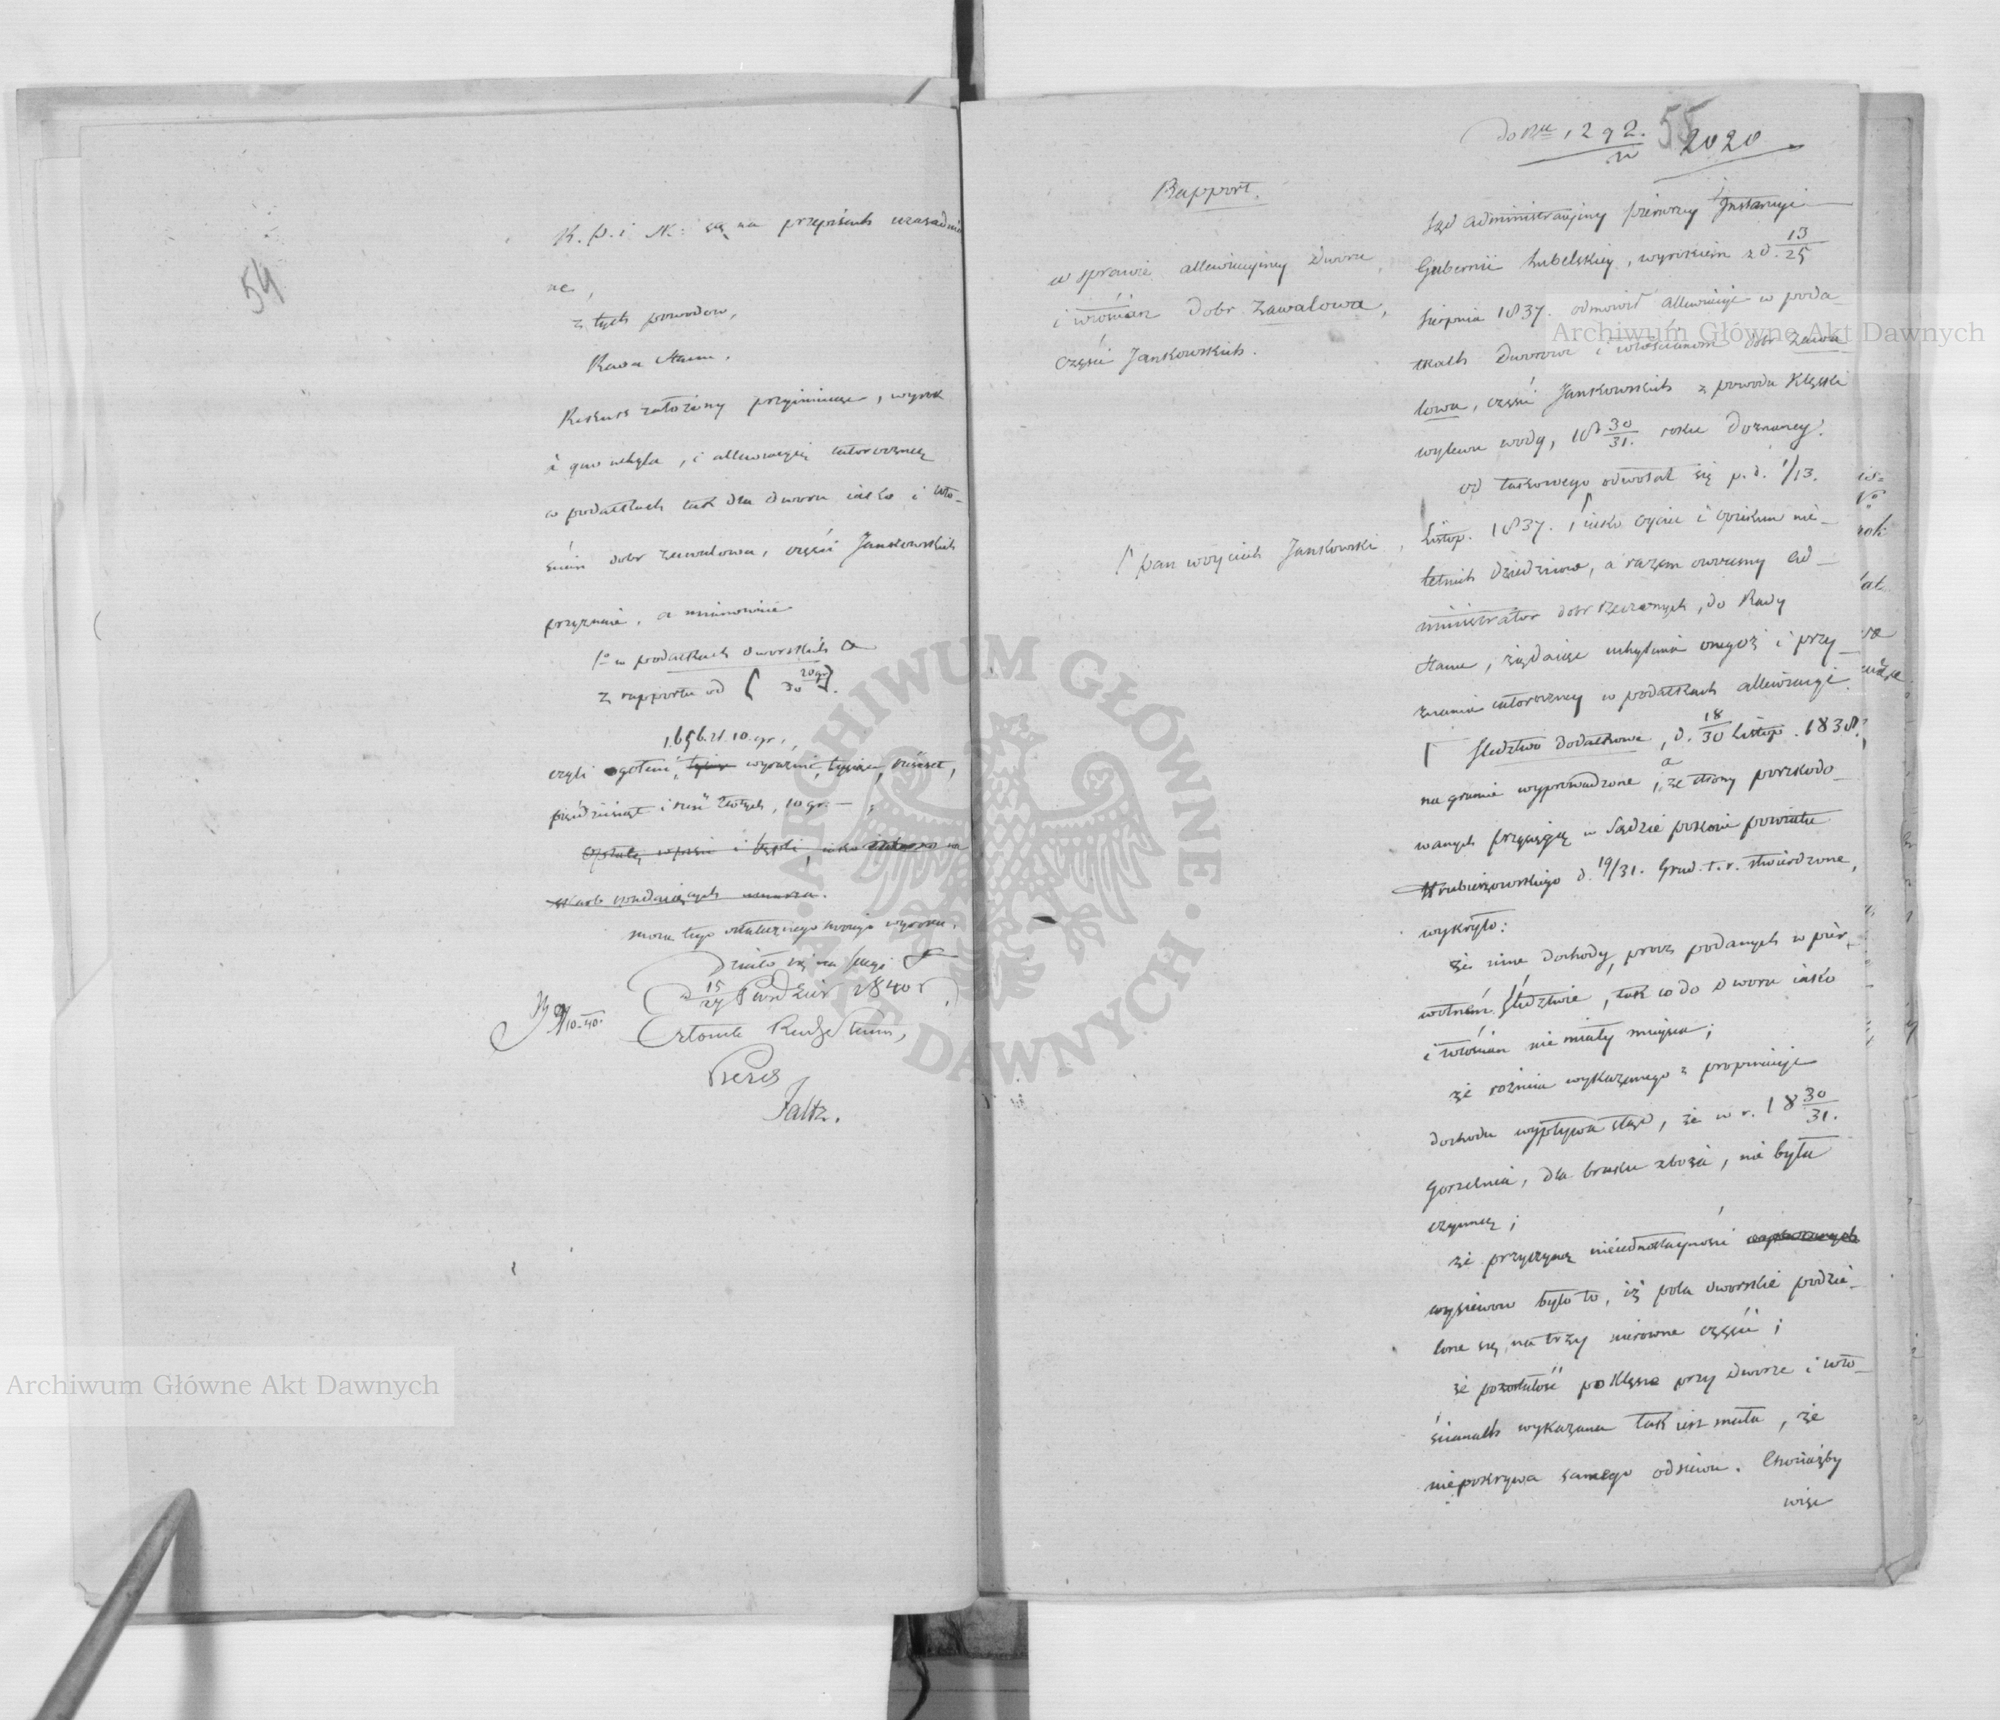 54
K. p. i N: są na przepisach uzasadnio
ne,
z tych powodow,
Rada Stanu.
Rekurs założony przyimuiąc, wyrok
à quo uchyla, i allewiacyą całoroczną
w podatkach tak dla dworu iako i wło-
ścian dobr Zawalowa, części Jankowskich
przyznaie, a mianowicie
1º w podatkach dworskich
z rapportu od
1,656. zł. 10. gr.,
czyli ogółem, wyraźnie, tysiąc, sześćset,
pięćdziesiąt i sześć złotych, 10 gr. —
mocą tego ostatecznego swoiego wyroku.
Działo się na Sessyi
d. 15/27 Paździer 1840 r
Członek Rady Stanu,
Prezes
Faltz.
55
do Nru 1292. 2020
Rapport.
w sprawie allewiacyiney Dworu
i włościan dobr Zawalowa,
części Jankowskich.
Sąd administracyiny pierwszy Instancyi
Gubernii Lubelskiey, wyrokiem z d. 13/25
Sierpnia 1837. odmówił allewiacyi w poda-
tkach dworowi i włościanom dobr Zawa
lowa, części Jankowskich z powodu klęski
wylewu wody, 18 30/31. roku doznaney.
od takowego odwołał się p. d. 1/13.
Listop. 1837. iako oycie i opiekun nie-
/ pan Woyciech Jankowski,
letnich dziedziców, a razem owczesny ad-
ministrator dobr rzeczonych, do Rady
Stanu, żądaiąc uchylenia onegoż i przy-
znania całoroczney w podatkach allewiacyi.
Sledztwo dodatkowe, d. 18/30 Listop. 1838.
na gruncie wyprowadzone, a ze strony poszkodo-
wanych przysięgą w Sądzie pokoiu powiatu
Hrubieszowskiego d. 19/31. Grud. t. r. stwierdzone,
wykryło:
że inne dochody, procz podanych w pier-
wotném Śledztwie, tak co do dworu iako
i włościan nie miały mieysca;
że rożnica wykazanego z propinacyi
dochodu wypływa stąd, że w r. 18 30/31.
gorzelnia, dla braku zboża, nie była
czynną;
że przyczyną nieiednostayności
wysiewow było to, iż pola dworskie podzie-
lone są, na trzy nierowne części;
że pozostałość po klęsce przy dworze i wło-
ścianach wykazana tak iest mała, że
niepokrywa samego odsiewu. Chociażby
więc
Archiwum Główne Akt Dawnych
Archiwum Główne Akt Dawnych
ARCHIWUM GŁÓWNE AKT DAWNYCH